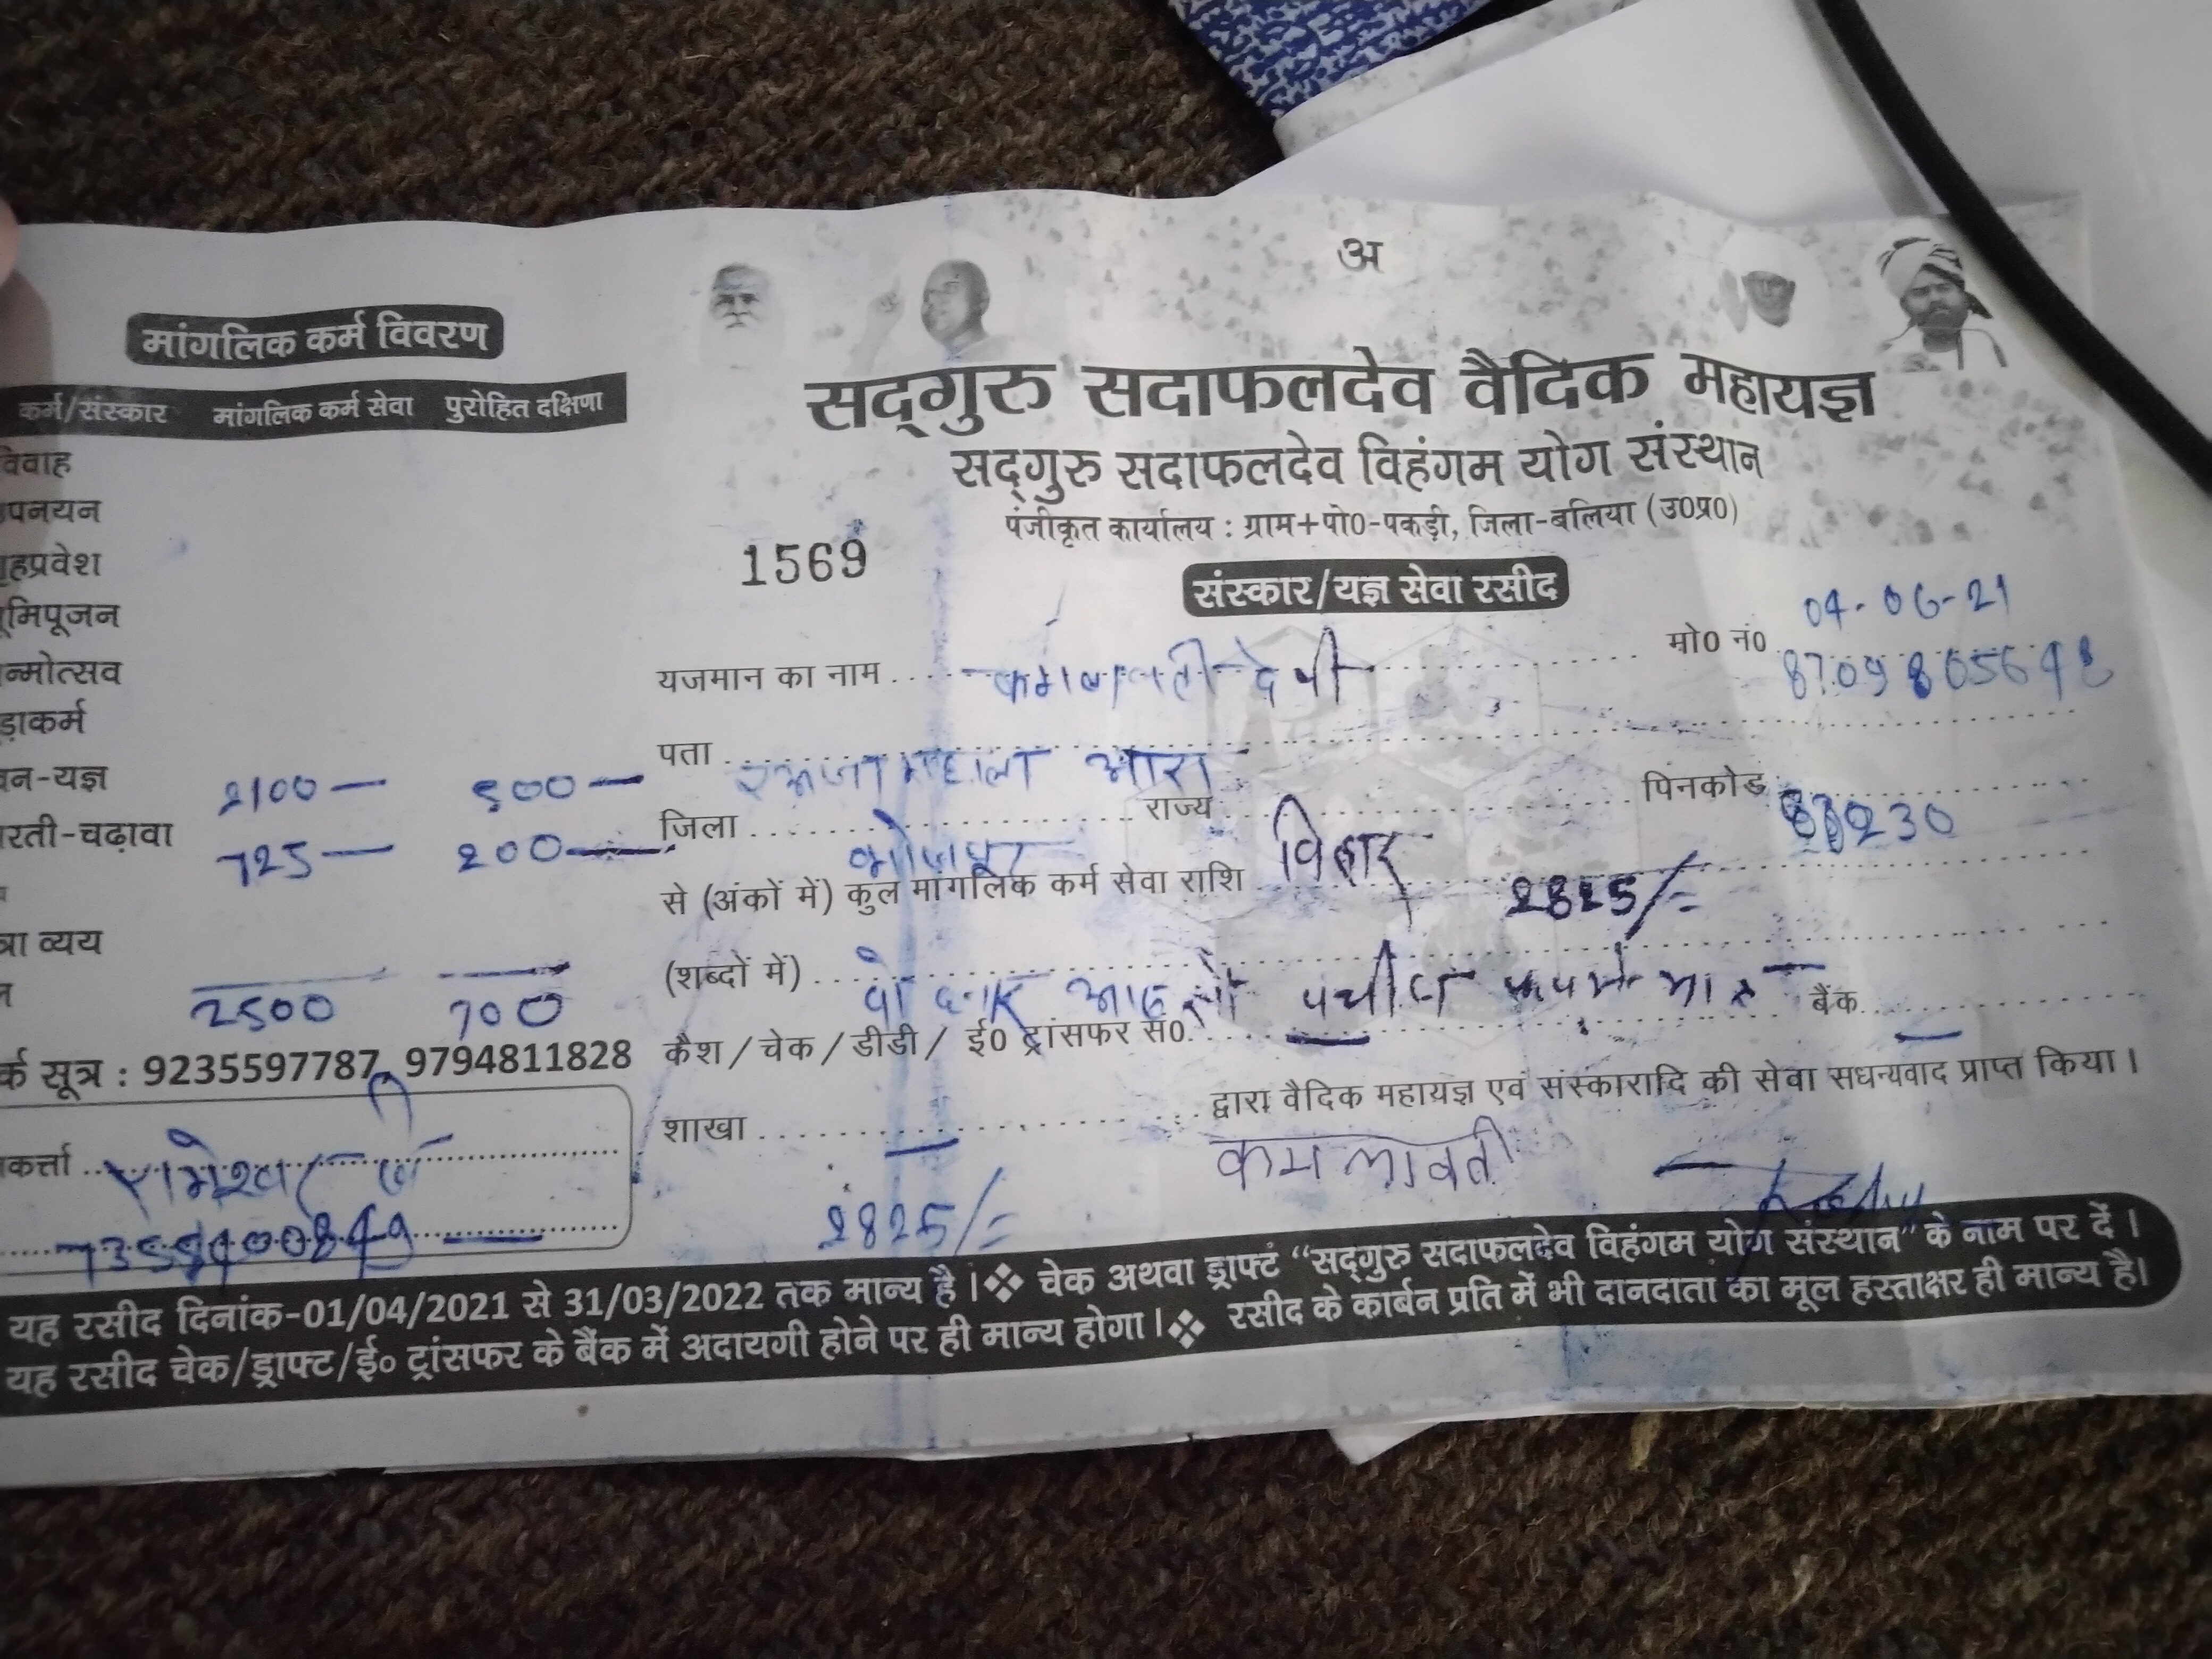 अ
मांगलिक कर्म विवरण
कर्म/संस्कार मांगलिक कर्म सेवा पुरोहित दक्षिणा
विवाह
पनयन
हप्रवेश
मिपूजन
न्मोत्सव
ड़ाकर्म
न-यज्ञ 2100— 500—
रती-चढ़ावा 725— 200—
त्रा व्यय
2500 700
र्क सूत्र : 9235597787, 9794811828
कर्त्ता रामेश्वर
सद्गुरु सदाफलदेव वैदिक महायज्ञ
सद्गुरु सदाफलदेव विहंगम योग संस्थान
पंजीकृत कार्यालय : ग्राम+पो0-पकड़ी, जिला-बलिया (उ0प्र0)
1569
संस्कार/यज्ञ सेवा रसीद
04-06-21
यजमान का नाम कमलावती देवी मो0 नं0
पता आरा
जिला भोजपुर राज्य बिहार पिनकोड
से (अंकों में) कुल मांगलिक कर्म सेवा राशि 2825/=
(शब्दों में) दो हजार आठ सौ पचीस रूपये मात्र
कैश/चेक/डीडी/ ई0 ट्रांसफर सं0 — बैंक —
शाखा — द्वारा वैदिक महायज्ञ एवं संस्कारादि की सेवा सधन्यवाद प्राप्त किया।
2825/= कमलावती
यह रसीद दिनांक-01/04/2021 से 31/03/2022 तक मान्य है।❖ चेक अथवा ड्राफ्टं “सद्गुरु सदाफलदेव विहंगम योग संस्थान” के नाम पर दें।
यह रसीद चेक/ड्राफ्ट/ई० ट्रांसफर के बैंक में अदायगी होने पर ही मान्य होगा।❖ रसीद के कार्बन प्रति में भी दानदाता का मूल हस्ताक्षर ही मान्य है।